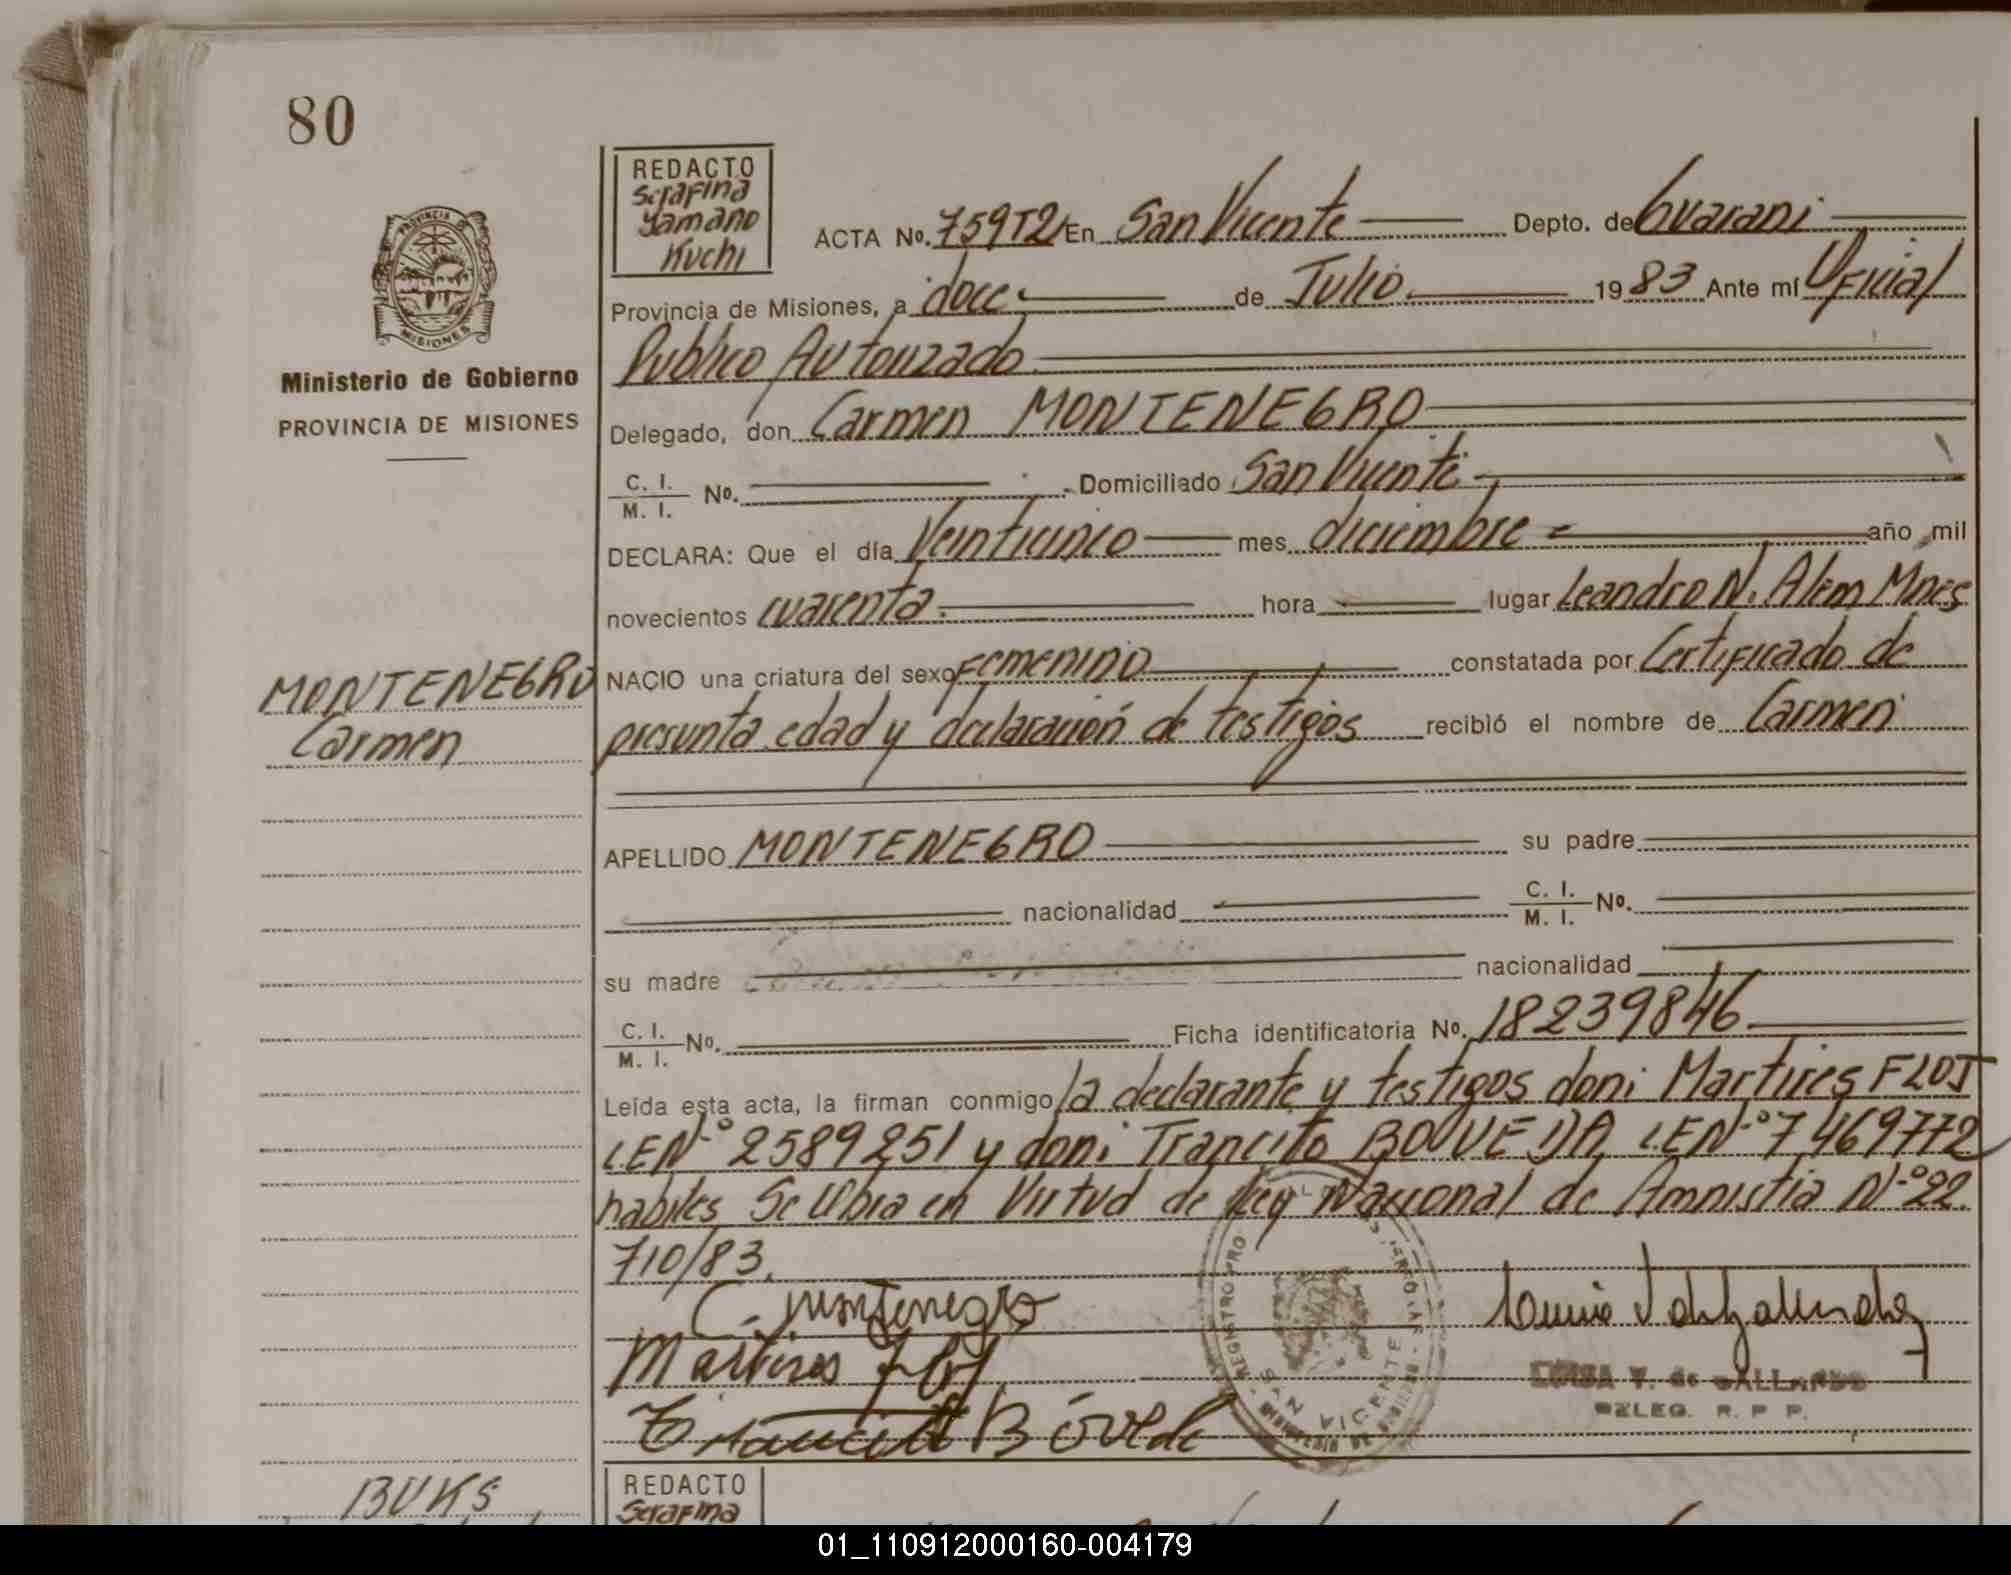 80
REDACTO
Serafina
Yamano
Kuchi
PROVINCIA DE
MISIONES
Ministerio de Gobierno
PROVINCIA DE MISIONES
ACTA No. 759T2 En San Vicente Depto. de Guarani
Provincia de Misiones, a doce de Julio 1983 Ante mí Oficial
Publico Autorizado
Delegado, don Carmen MONTENEGRO
C. I.
M. I. No. Domiciliado San Vicente
DECLARA: Que el día Veinticinco mes diciembre año mil
novecientos cuarenta hora lugar Leandro N. Alem Mnes
MONTENEGRO
Carmen
NACIO una criatura del sexo Femenino constatada por Certificado de
presunta edad y declaración de testigos recibió el nombre de Carmen
APELLIDO MONTENEGRO su padre
nacionalidad C. I.
M. I. No.
su madre nacionalidad
C. I.
M. I. No. Ficha identificatoria No. 18239846
Leída esta acta, la firman conmigo la declarante y testigos don: Martires FLOT
LEN° 2589251 y don: Trancito BOVEDA LEN° 7469772
habiles Se labra en Virtud de Ley Nacional de Amnistia N°22.
710/83.
C. Montenegro
Martires Flot
Trancito Bóveda
SAN VICENTE
LUISA V. de GALLARDO
DELEG. R. P. P.
BUKS
REDACTO
Serafina
01_110912000160-004179